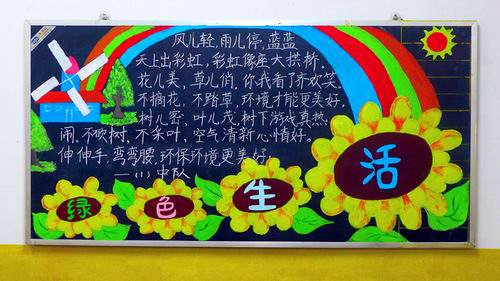 风儿轻,雨儿停,蓝蓝
天上出彩虹,彩虹像座大拱桥.
花儿美,草儿俏,你我看了齐欢笑.
不摘花,不踏草,环境才能更美好.
树儿密,叶儿茂,树下游戏真热
闹.不砍树,不采叶,空气清新心情好.
伸伸手,弯弯腰,环保环境更美好.
——(1)中队
绿色生活